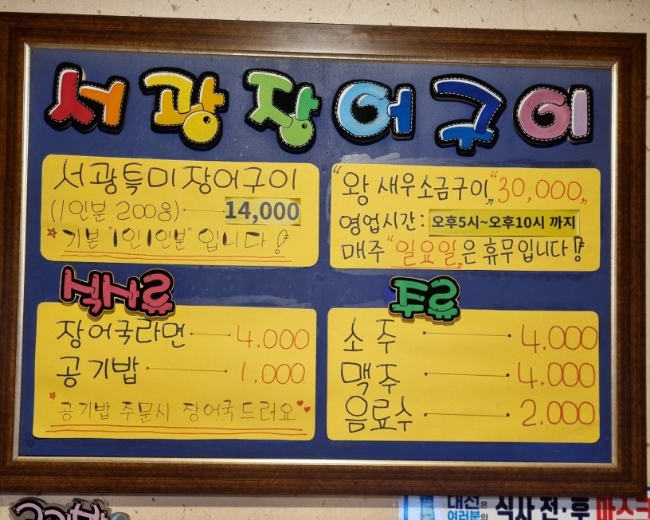 서광장어구이
서광특미장어구이
(1인분 200g) 14,000
*기본 "1인1인분" 입니다!
"왕 새우소금구이" 30,000,,
영업시간: 오후5시~오후10시 까지
매주 "일요일"은 휴무입니다!
식사류
장어국라면 4.000
공기밥 1.000
*공기밥 주문시 장어국드려요♥♥
주류
소주 4.000
맥주 4.000
음료수 2.000
대선은
여러분의
식사 전·후 마스크